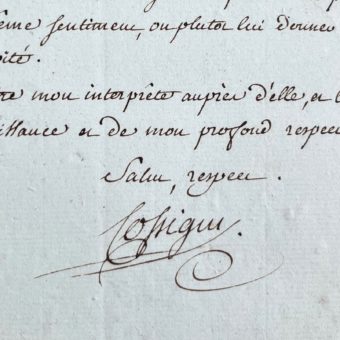 ême sentiment, ou plutot lui donner
ité.
re mon interprète auprès d'elle, et l
issance et de mon profond respec
Salut, respect.
Cossigni.